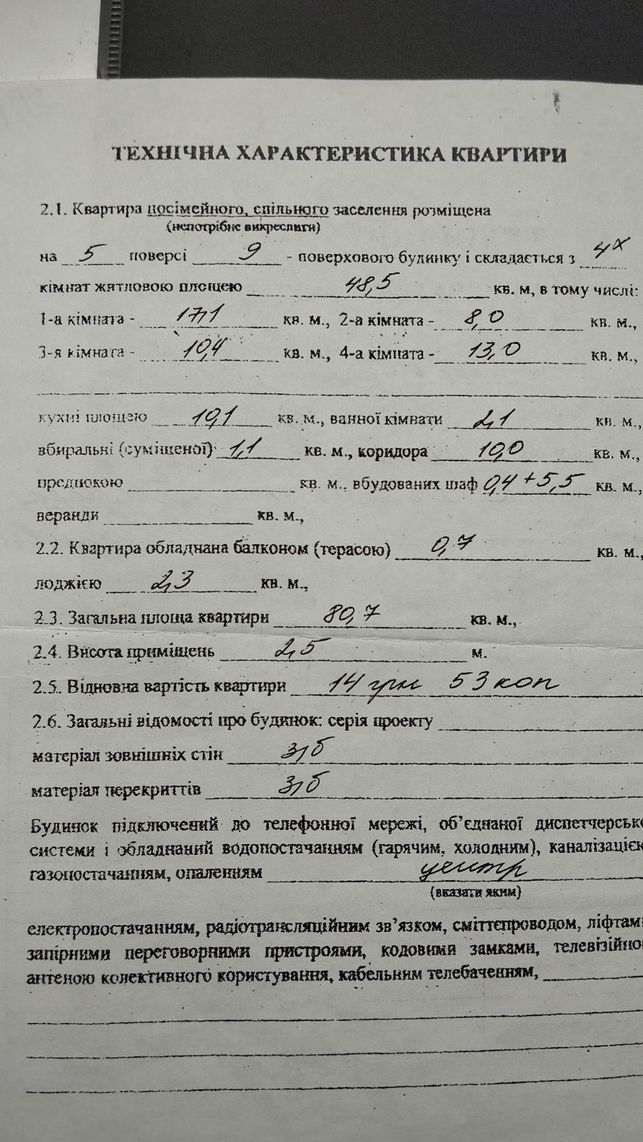 ТЕХНІЧНА ХАРАКТЕРИСТИКА КВАРТИРИ
2.1. Квартира посімейного, спільного заселення розміщена
(непотрібне викреслити)
на 5 поверсі 9 - поверхового будинку і складається з 4х
кімнат житловою площею 48,5 кв. м, в тому числі:
1-а кімната - 17,1 кв. м., 2-а кімната - 8,0 кв. м.,
3-я кімната - 10,4 кв. м., 4-а кімната - 13,0 кв. м.,
кухні площею 10,1 кв. м., ванної кімнати 2,1 кв. м.,
вбиральні (суміщеної) 1,1 кв. м., коридора 10,0 кв. м.,
передпокою кв. м., вбудованих шаф 0,4 + 5,5 кв. м.,
веранди кв. м.,
2.2. Квартира обладнана балконом (терасою) 0,7 кв. м.,
лоджією 2,3 кв. м.,
2.3. Загальна площа квартири 80,7 кв. м.,
2.4. Висота приміщень 2,5 м.
2.5. Відновна вартість квартири 14 грн 53 коп
2.6. Загальні відомості про будинок: серія проекту
матеріал зовнішніх стін з/б
матеріал перекриттів з/б
Будинок підключений до телефонної мережі, об’єднаної диспетчерсько
системи і обладнаний водопостачанням (гарячим, холодним), каналізацією
газопостачанням, опаленням центр
(вказати яким)
електропостачанням, радіотрансляційним зв’язком, сміттєпроводом, ліфтам
запірними переговорними пристроями, кодовими замками, телевізійно
антеною колективного користування, кабельним телебаченням,